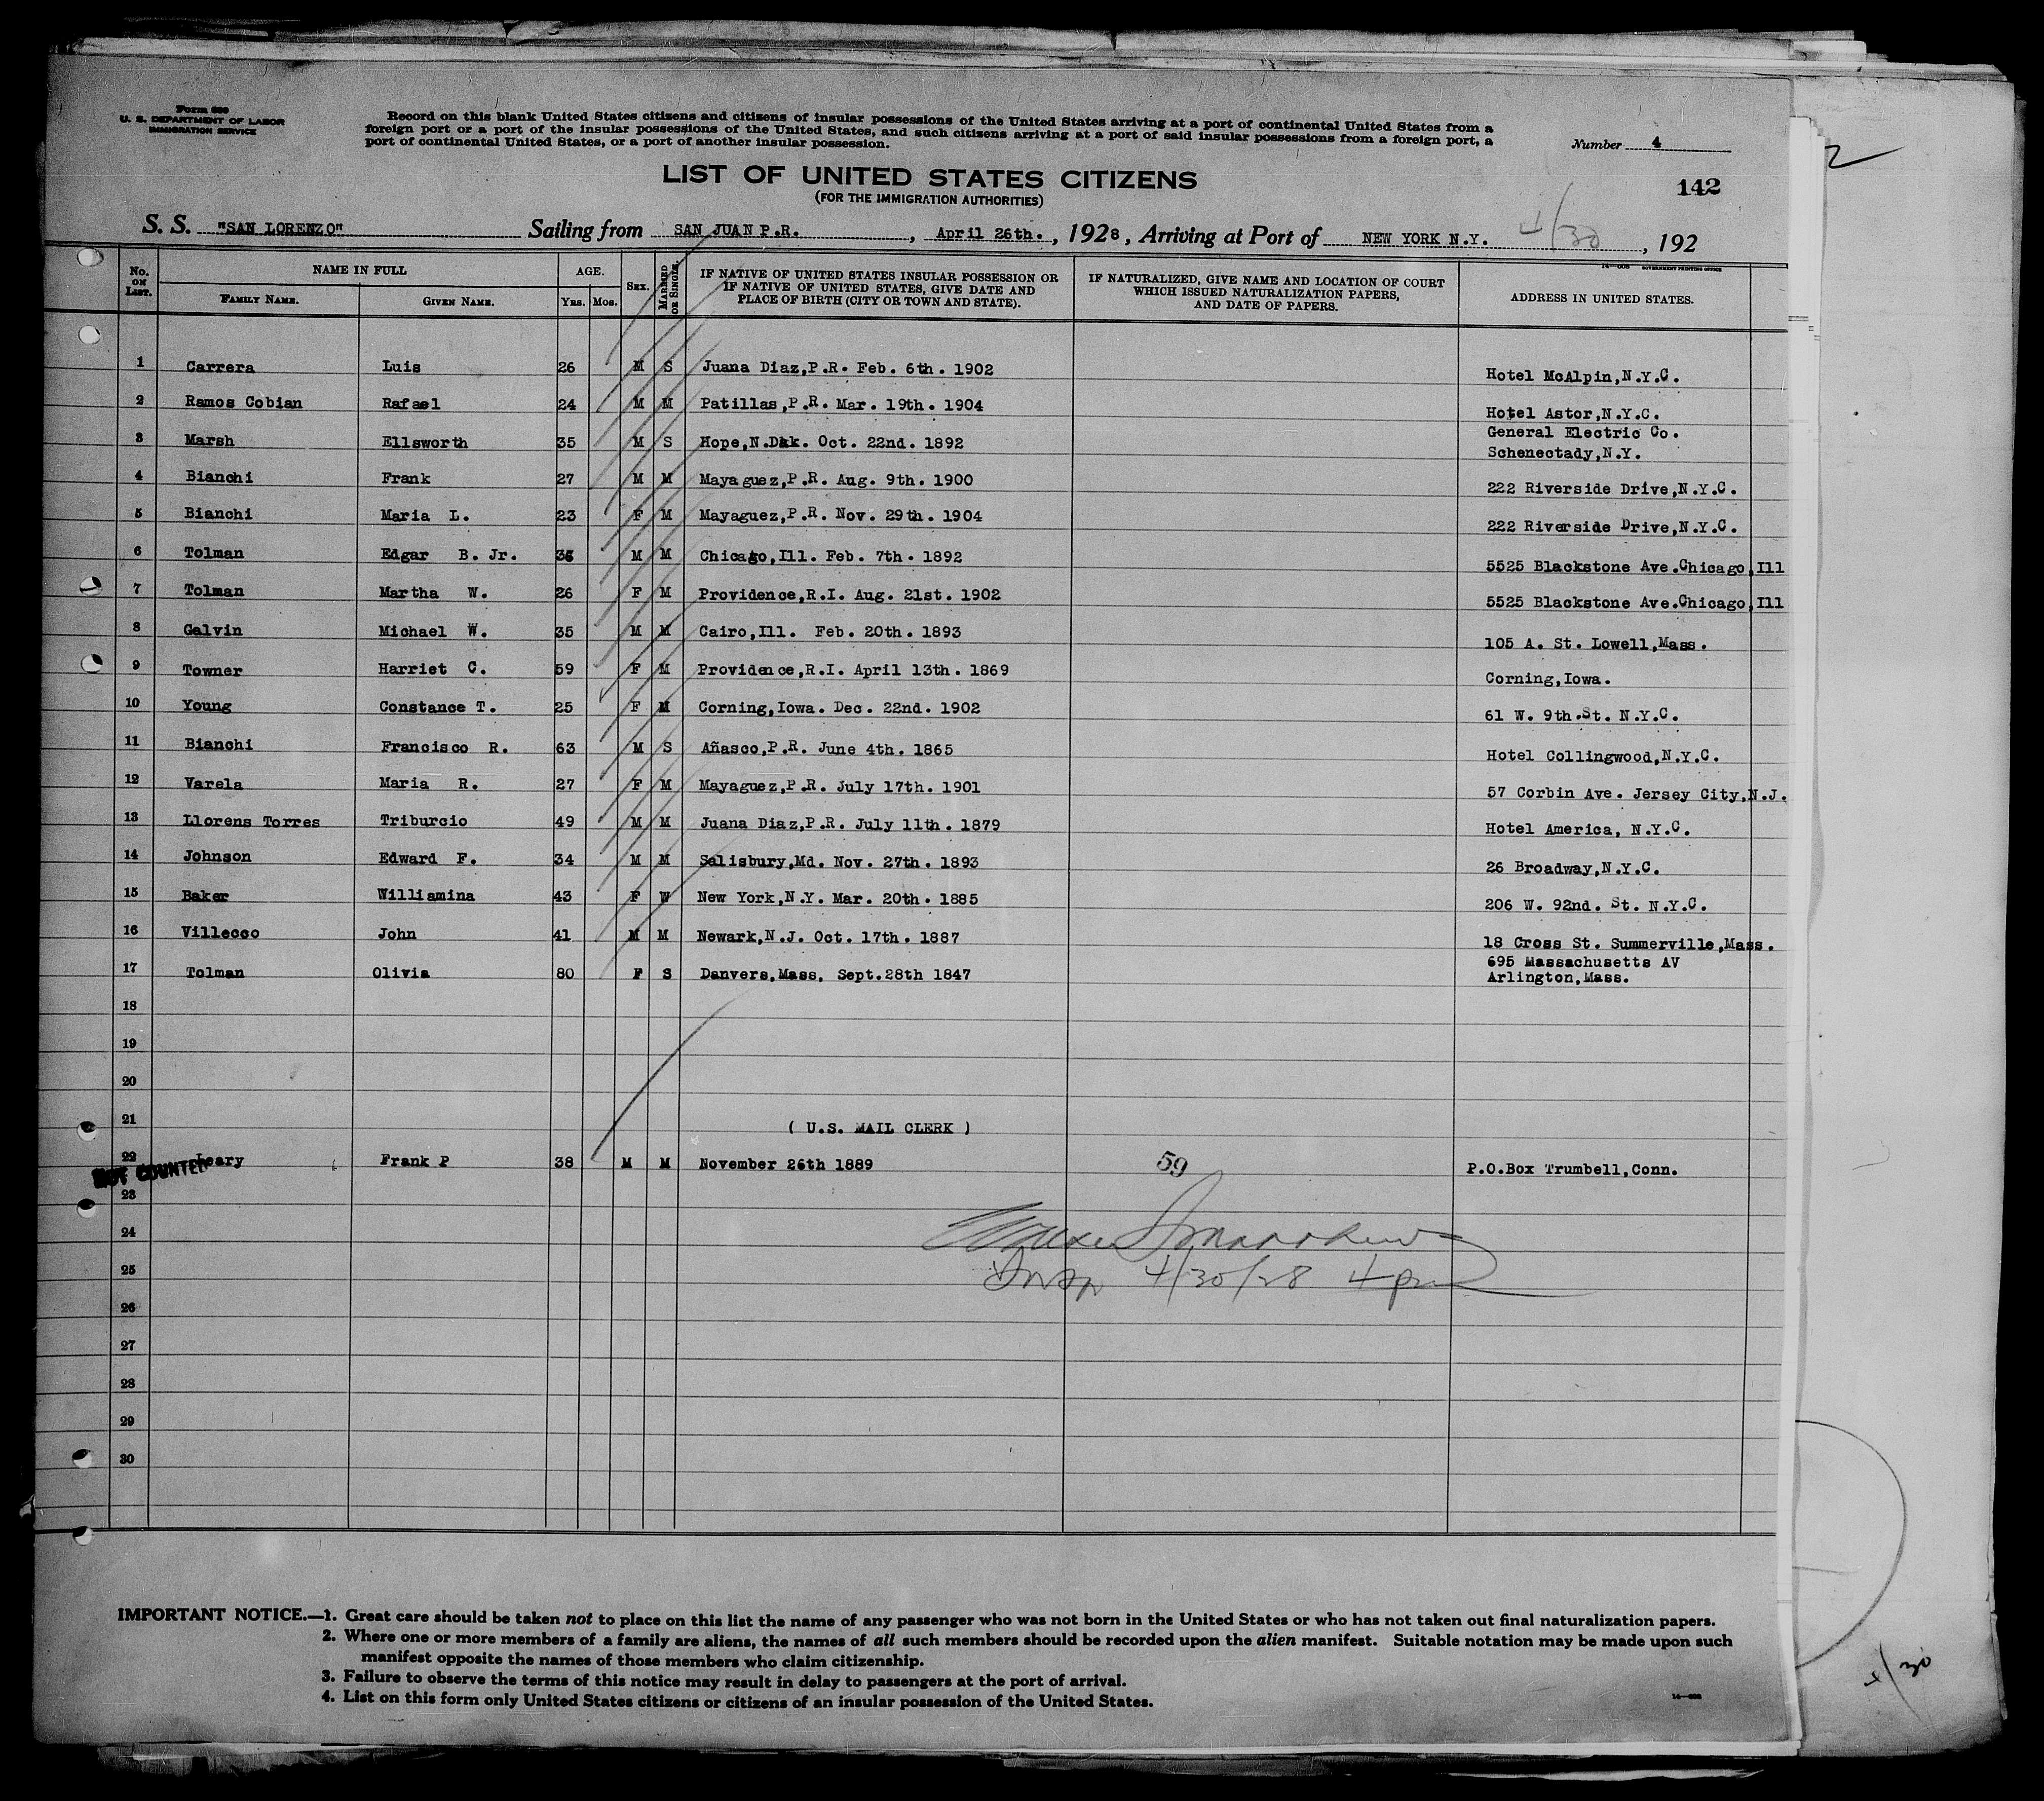 Form 630
U. S. DEPARTMENT OF LABOR
IMMIGRATION SERVICE
Record on this blank United States citizens and citizens of insular possessions of the United States arriving at a port of continental United States from a
foreign port or a port of the insular possessions of the United States, and such citizens arriving at a port of said insular possessions from a foreign port, a
port of continental United States, or a port of another insular possession.
Number 4
LIST OF UNITED STATES CITIZENS
(FOR THE IMMIGRATION AUTHORITIES)
142
S. S. "SAN LORENZO" Sailing from SAN JUAN P.R. , April 26th. , 1928 , Arriving at Port of NEW YORK N.Y. 4/30 , 192
14—608 GOVERNMENT PRINTING OFFICE
No. ON LIST. NAME IN FULL AGE. SEX. MARRIED OR SINGLE. IF NATIVE OF UNITED STATES INSULAR POSSESSION OR IF NATIVE OF UNITED STATES, GIVE DATE AND PLACE OF BIRTH (CITY OR TOWN AND STATE). IF NATURALIZED, GIVE NAME AND LOCATION OF COURT WHICH ISSUED NATURALIZATION PAPERS, AND DATE OF PAPERS. ADDRESS IN UNITED STATES.
FAMILY NAME. GIVEN NAME. YRS. MOS.
1 Carrera Luis 26 M S Juana Diaz,P.R. Feb. 6th. 1902 Hotel McAlpin,N.Y.C.
2 Ramos Cobian Rafael 24 M M Patillas,P.R. Mar. 19th. 1904 Hotel Astor,N.Y.C.
3 Marsh Ellsworth 35 M S Hope,N.Dak. Oct. 22nd. 1892 General Electric Co.
Schenectady,N.Y.
4 Bianchi Frank 27 M M Mayaguez,P.R. Aug. 9th. 1900 222 Riverside Drive,N.Y.C.
5 Bianchi Maria L. 23 F M Mayaguez,P.R. Nov. 29th. 1904 222 Riverside Drive,N.Y.C.
6 Tolman Edgar B. Jr. 36 M M Chicago,Ill. Feb. 7th. 1892 5525 Blackstone Ave.Chicago,Ill
7 Tolman Martha W. 26 F M Providence,R.I. Aug. 21st. 1902 5525 Blackstone Ave.Chicago,Ill
8 Galvin Michael W. 35 M M Cairo,Ill. Feb. 20th. 1893 105 A. St. Lowell,Mass.
9 Towner Harriet C. 59 F M Providence,R.I. April 13th. 1869 Corning,Iowa.
10 Young Constance T. 25 F M Corning,Iowa. Dec. 22nd. 1902 61 W. 9th.St. N.Y.C.
11 Bianchi Francisco R. 63 M S Añasco,P.R. June 4th. 1865 Hotel Collingwood,N.Y.C.
12 Varela Maria R. 27 F M Mayaguez,P.R. July 17th. 1901 57 Corbin Ave. Jersey City,N.J.
13 Llorens Torres Triburcio 49 M M Juana Diaz,P.R. July 11th. 1879 Hotel America, N.Y.C.
14 Johnson Edward F. 34 M M Salisbury,Md. Nov. 27th. 1893 26 Broadway,N.Y.C.
15 Baker Williamina 43 F W New York,N.Y. Mar. 20th. 1885 206 W. 92nd. St. N.Y.C.
16 Villecco John 41 M M Newark,N.J. Oct. 17th. 1887 18 Cross St. Summerville,Mass.
17 Tolman Olivia 80 F S Danvers,Mass. Sept.28th 1847 695 Massachusetts AV
Arlington,Mass.
18
19
20
21 ( U.S. MAIL CLERK )
22 Leary Frank P 38 M M November 26th 1889 59 P.O.Box Trumbell,Conn.
NOT COUNTED
23
24
25 Insp 4/30/28 4 pm
26
27
28
29
30
IMPORTANT NOTICE.—1. Great care should be taken not to place on this list the name of any passenger who was not born in the United States or who has not taken out final naturalization papers.
2. Where one or more members of a family are aliens, the names of all such members should be recorded upon the alien manifest. Suitable notation may be made upon such
manifest opposite the names of those members who claim citizenship.
3. Failure to observe the terms of this notice may result in delay to passengers at the port of arrival.
4. List on this form only United States citizens or citizens of an insular possession of the United States.
4/30